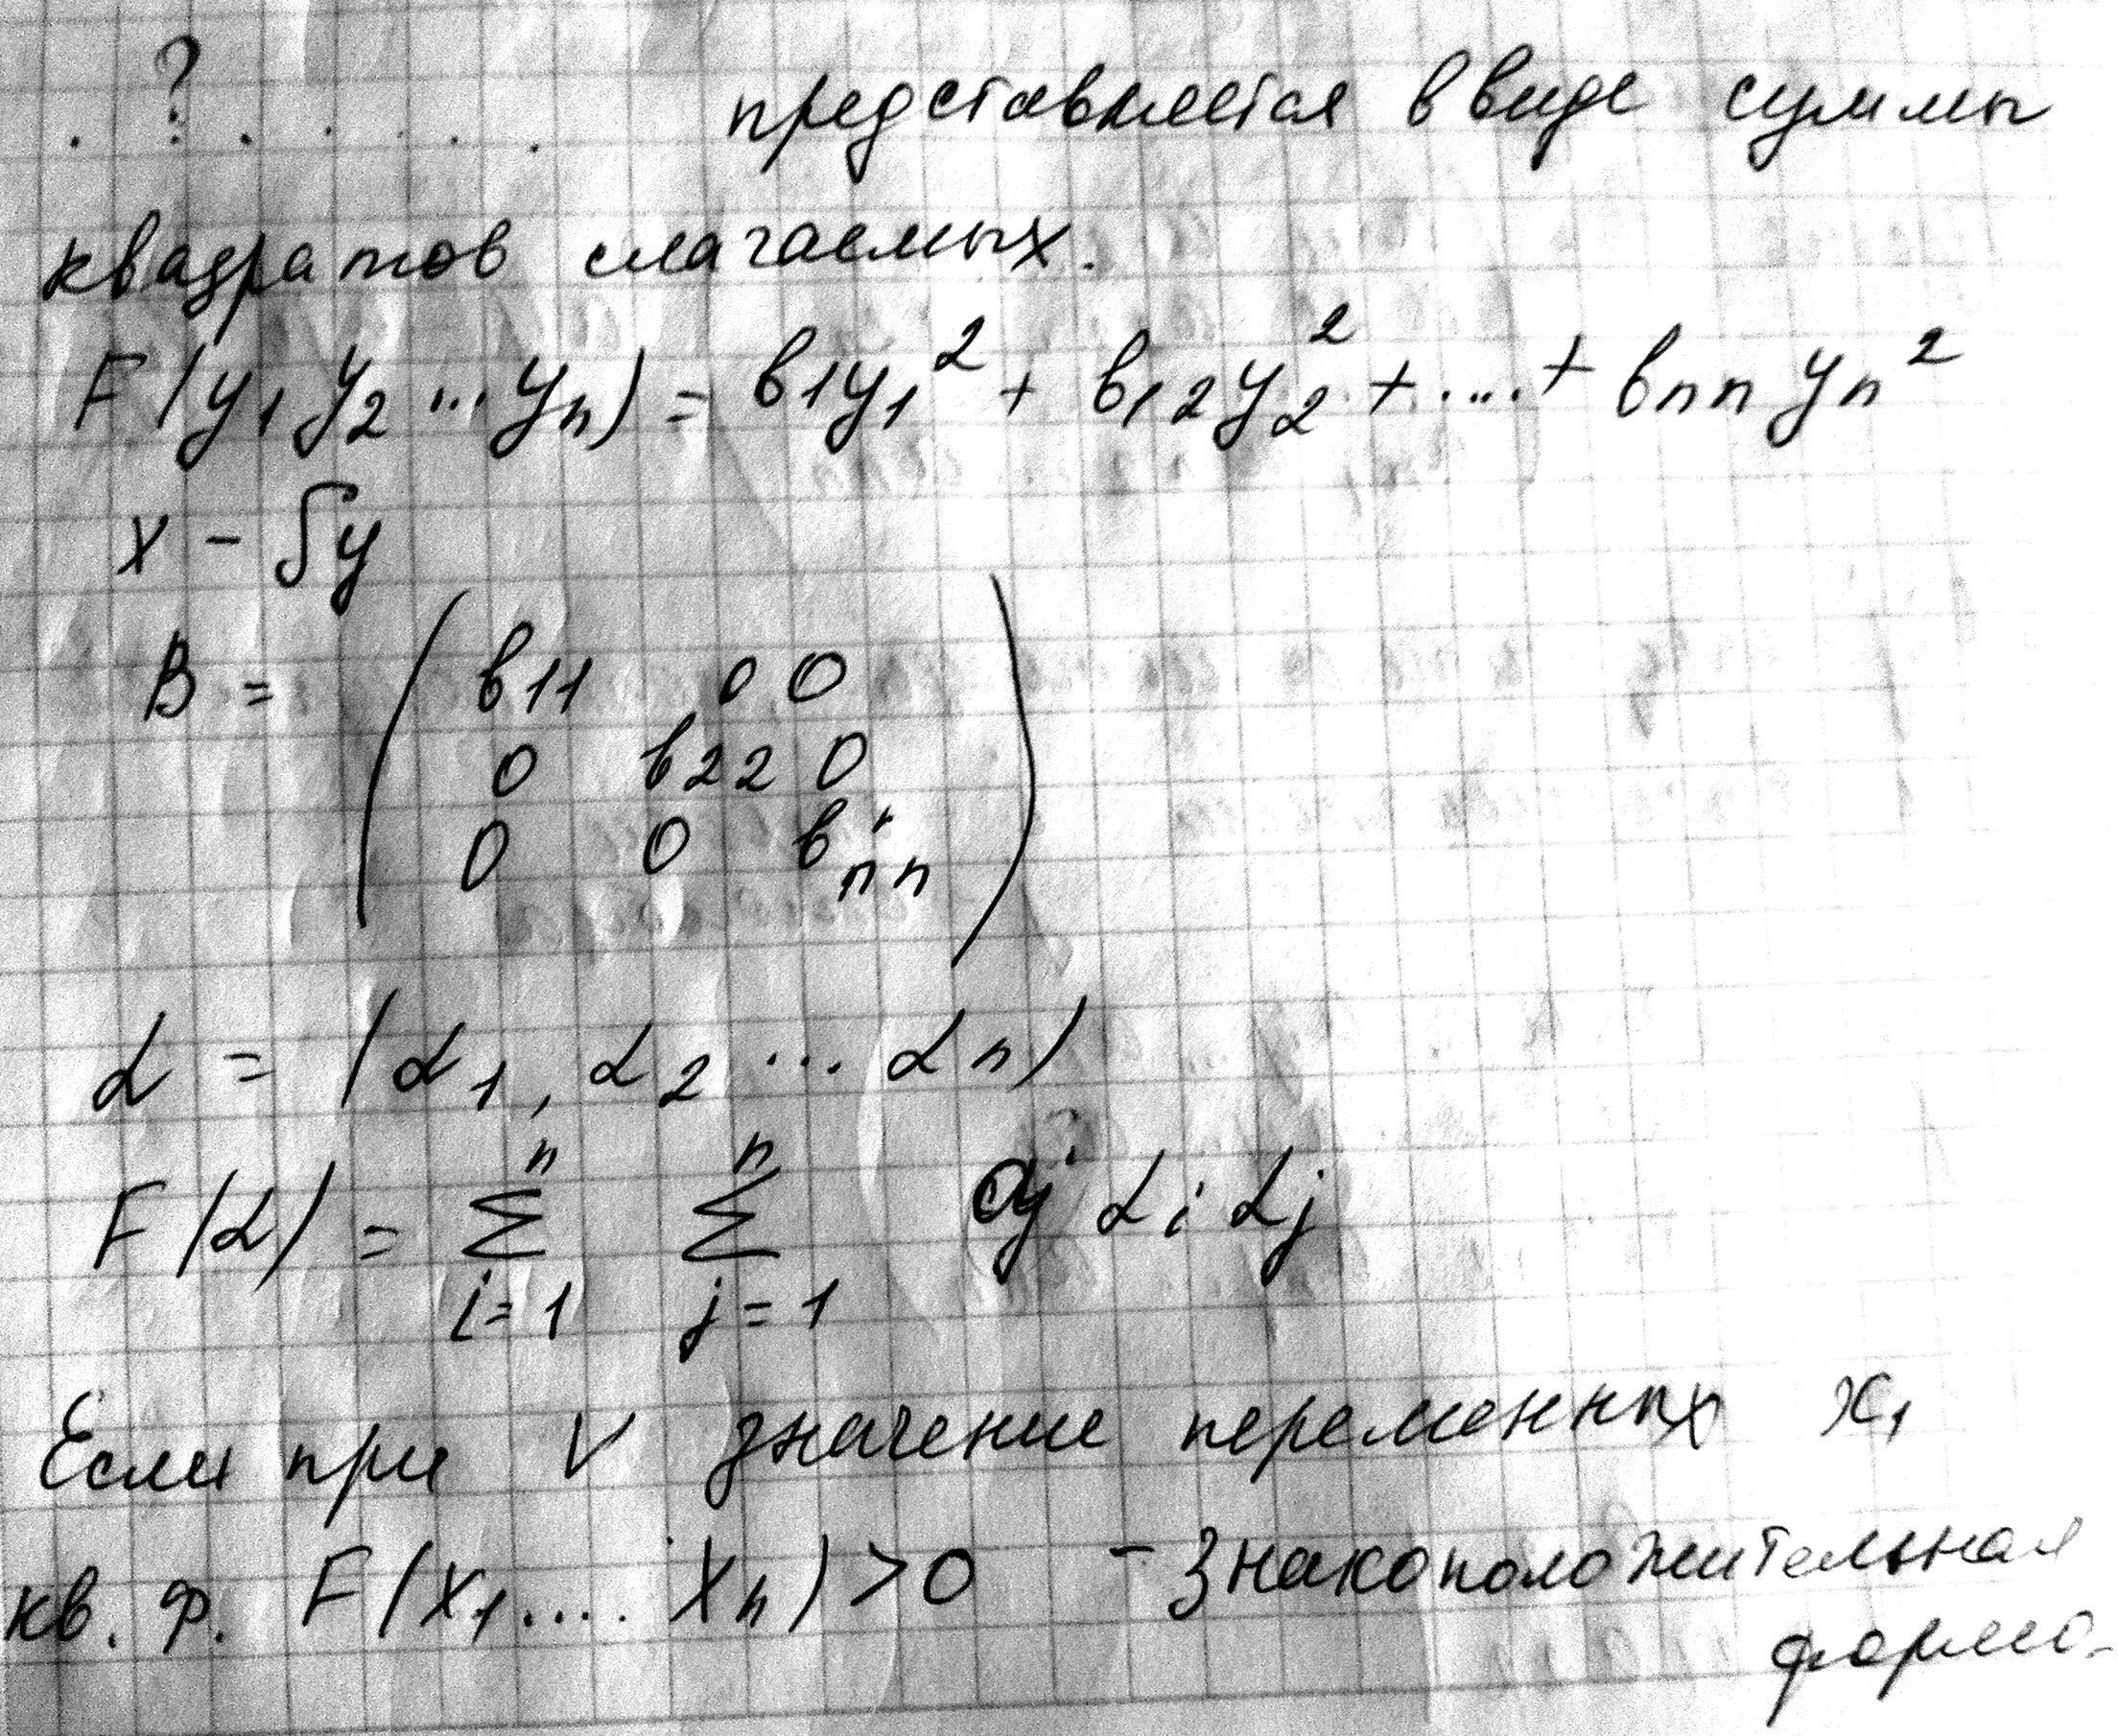 . ? . . . . . представляется в виде суммы
квадратов слагаемых.
F(y₁ y₂ ... yₙ) = в1y₁² + в₁₂y₂² + .... + вnn yₙ²
x - Sy
B = ( в11 0 0
0 в22 0
0 0 вₙₙ )
α = (α₁, α₂ ... αn)
n n
F(α) = Σ Σ αi αj
i=1 j=1
Если при V значение переменных x₁
кв. ф. F(x₁.... xₙ) >0 - Знакоположительная